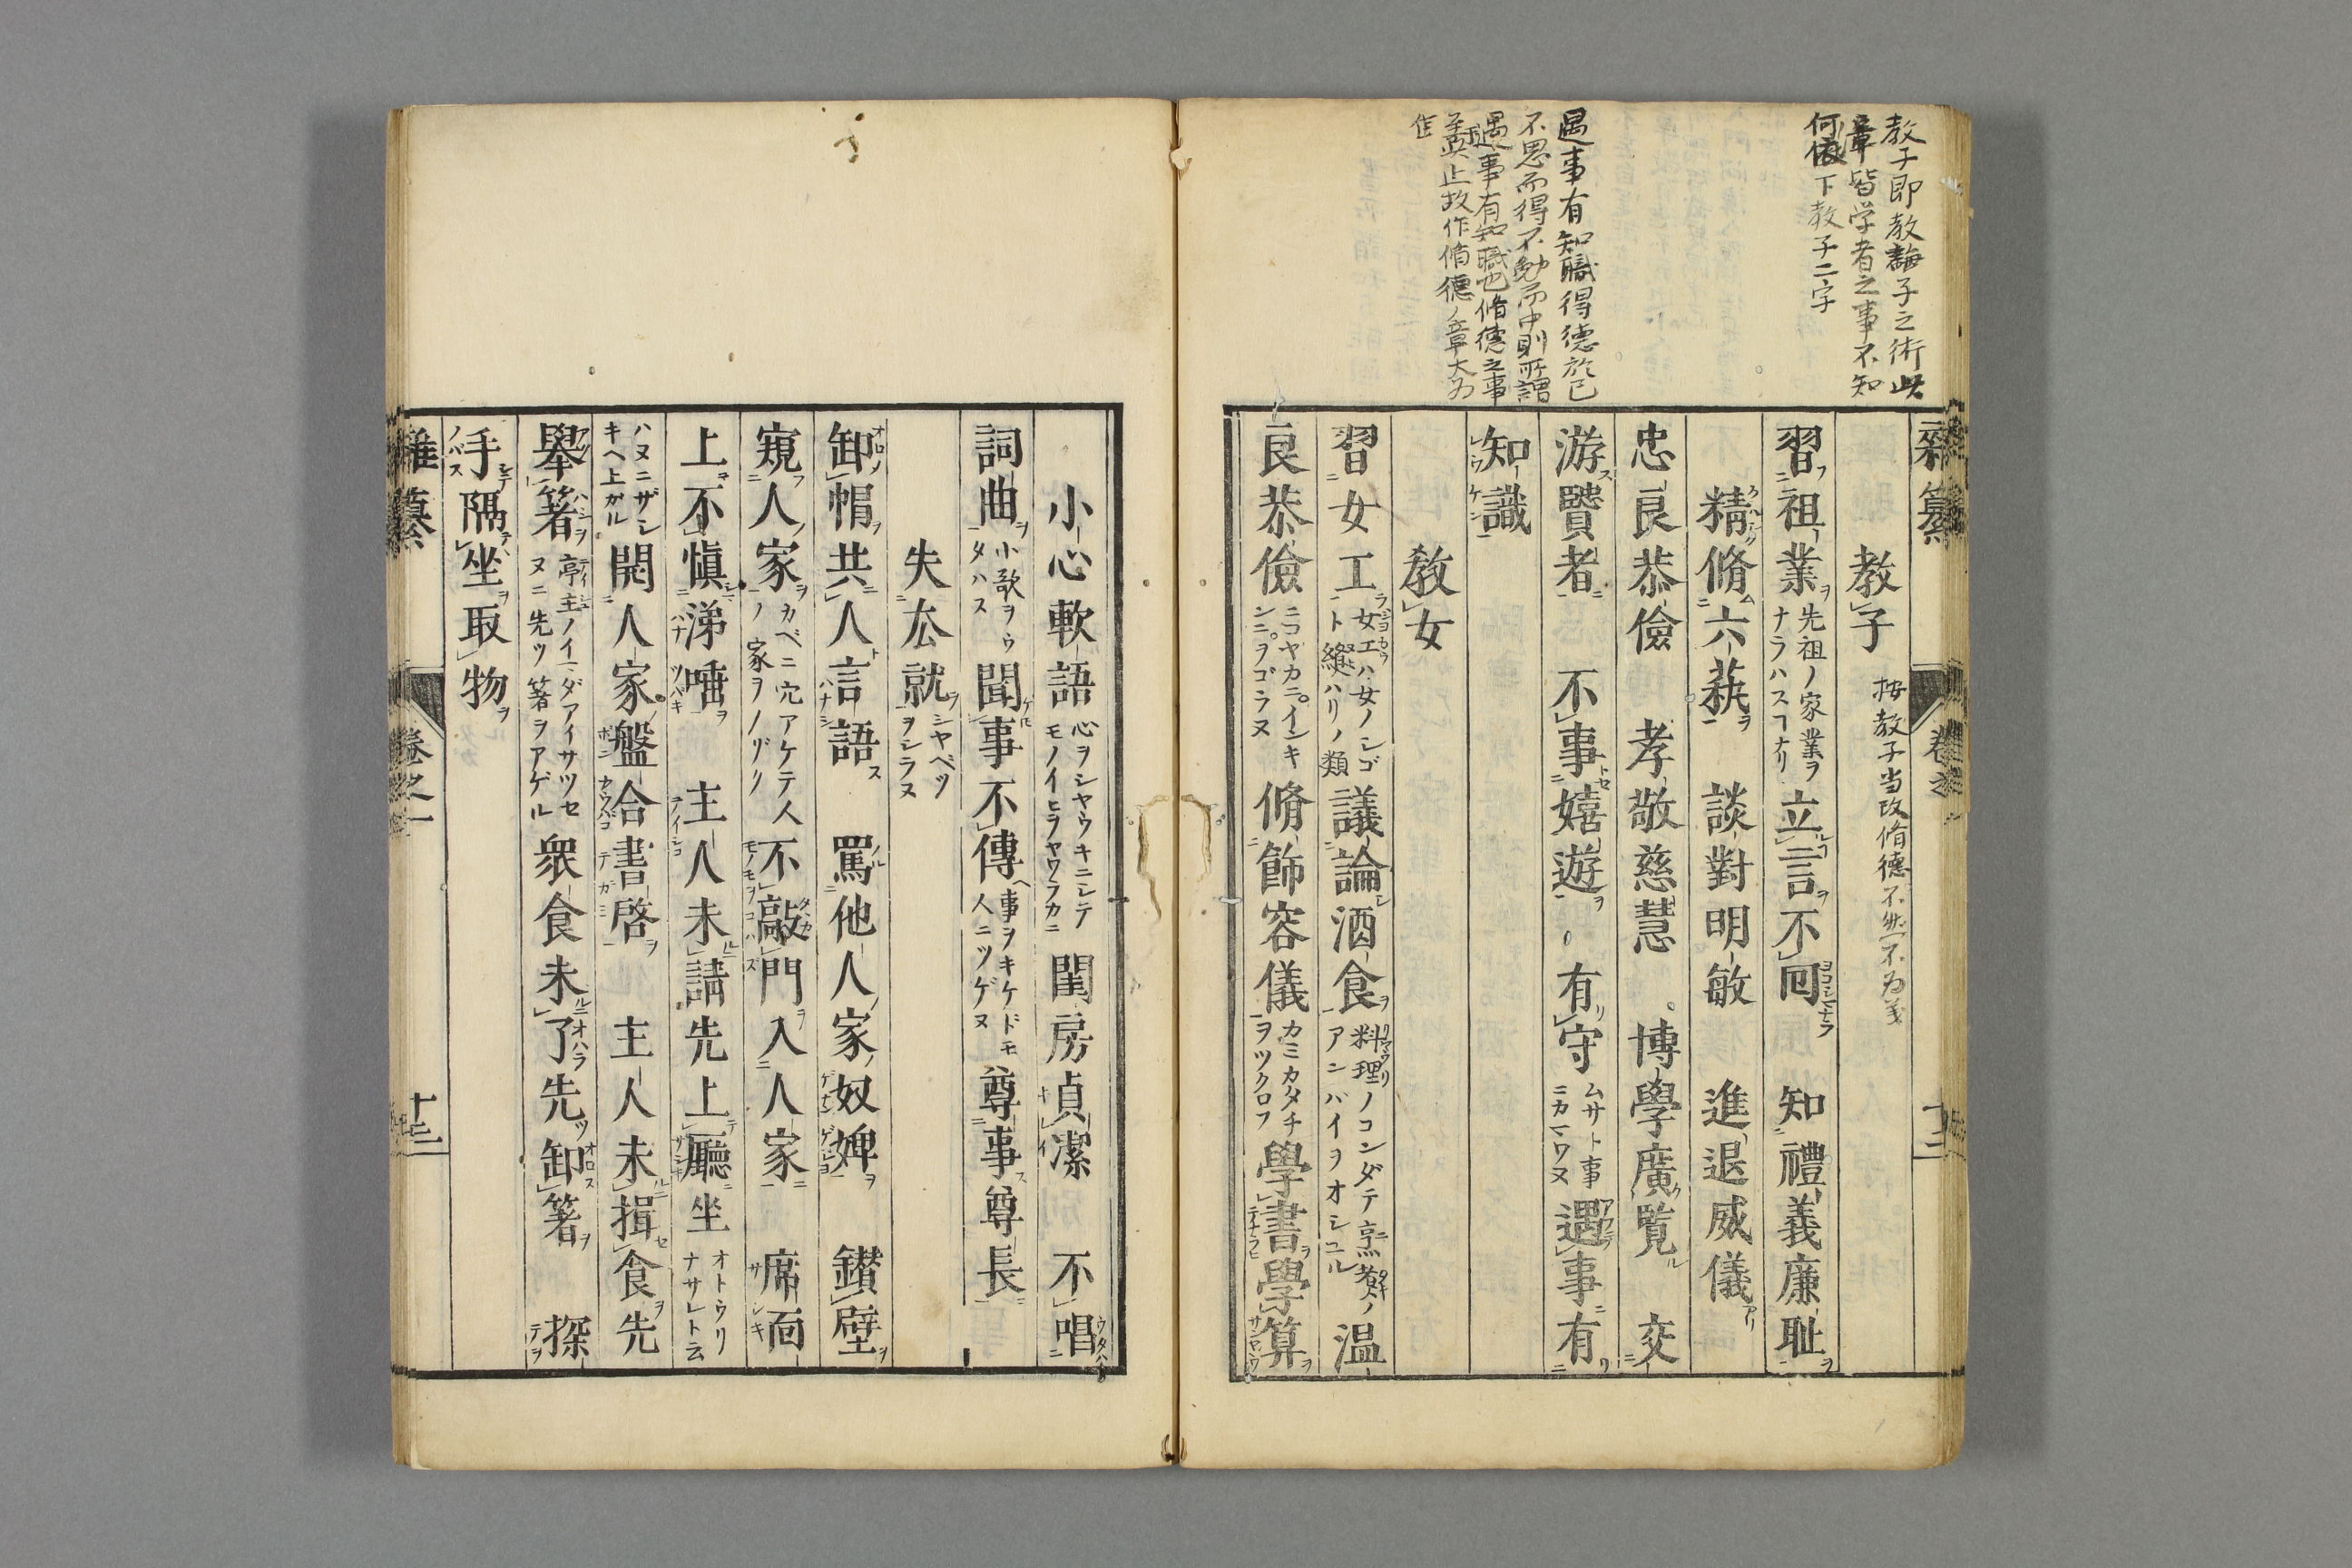 教子即教誨子之術此
章皆学者之事不知
何依下教子二字
遇事有知識得德於己
不思而得不勉而中則所謂
遇事有知識也脩德之事
至此止故作脩德ノ章大為
佳
雜纂 卷之一 十二
教子 按教子当改脩德不然不為義
習祖業 先祖ノ家業ヲナラハスコナリ 立言不回 知禮義廉恥
精脩六藝 談對明敏 進退威儀
忠良恭儉 孝敬慈慧 博學廣覧 交
游賢者 不事嬉遊 有守 ムサト事ニカマワヌ 遇事有
知識
教女
習女工 女工ハ女ノシゴト縫ハリノ類 議論酒食 料理ノコンダテ烹煮ノアンバイヲオシユル 温
良恭儉 ニコヤカニ。インキンニ。ヲゴラヌ 脩飾容儀 カミカタチヲツクロフ 學書學算
小心軟語 心ヲシヤウキニシテモノイヒヲヤワラカニ 閨房貞潔 不唱
詞曲 小歌ヲウタハス 聞事不傳 事ヲキケドモ人ニツゲヌ 尊事尊長
失本就 シヤベツヲシラヌ
卸帽共人言語 罵他人家奴婢 鑚壁
窺人家 カベニ穴アケテ人ノ家ヲノゾク 不敲門入人家 席面
上不慎涕唾 主人未請先上廳坐 オトウリナサレト云
ハヌニザシキヘ上ガル 開人家盤合書啓 主人未揖食先
舉箸 亭主ノイマダアイサツセヌニ先ツ箸ヲアゲル 衆食未了先卸箸 探
手隔坐取物
雜纂 卷之一 十三